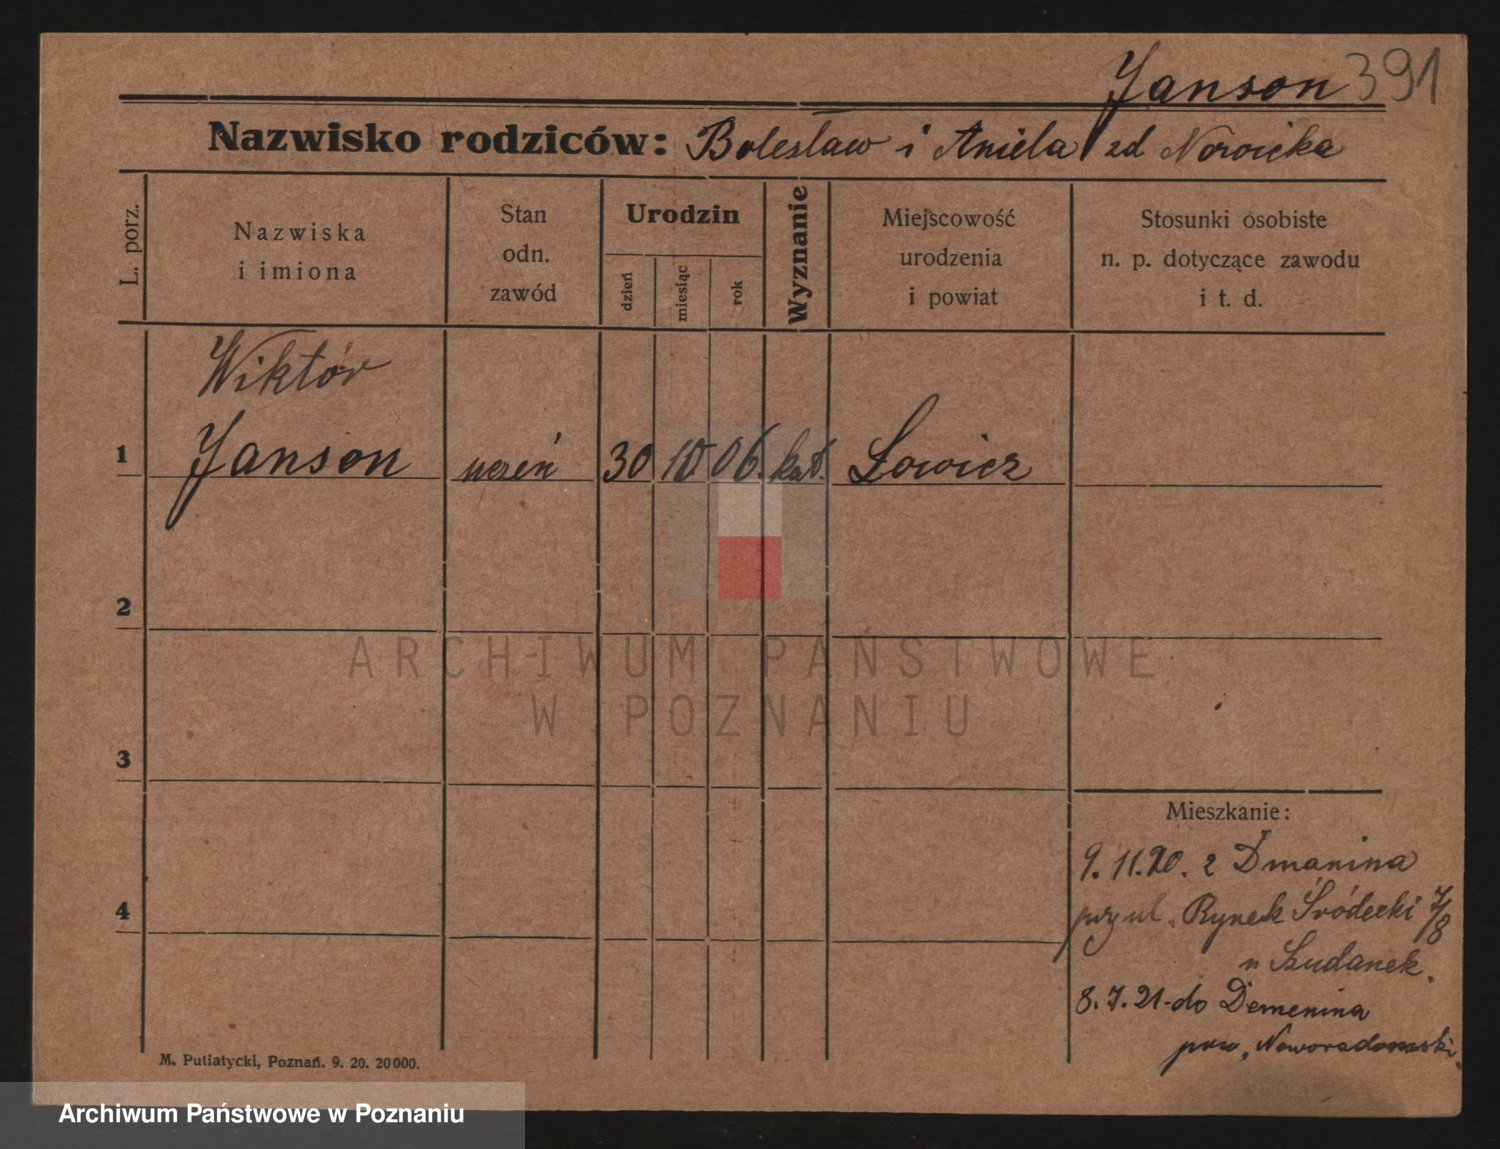 Janson 391
Nazwisko rodziców: Bolesław i Aniela zd Nowicka
L. porz.
Nazwiska
i imiona
Stan
odn.
zawód
Urodzin
dzień
miesiąc
rok
Wyznanie
Miejscowość
urodzenia
i powiat
Stosunki osobiste
n. p. dotyczące zawodu
i t. d.
Wiktór
1 Janson uczeń 30 10 06. kat. Łowicz
2
ARCHIWUM PAŃSTWOWE
W POZNANIU
3
Mieszkanie:
9. 11. 20. z Dmanina
przy ul. Rynek Śródecki 7/8
u Szudanek.
4
8. 7. 21 - do Demenina
pow. Noworadomski.
M. Putiatycki, Poznań. 9. 20. 20 000.
Archiwum Państwowe w Poznaniu